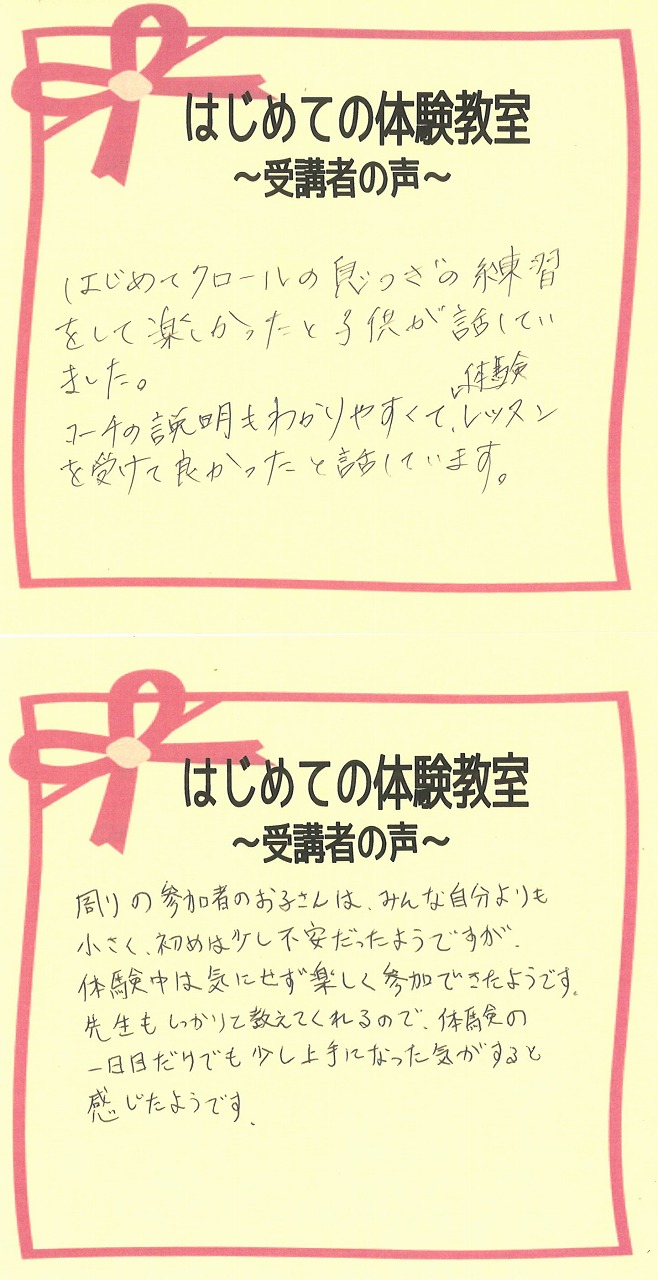 はじめての体験教室
～受講者の声～
はじめてクロールの息つぎの練習
をして楽しかったと子供が話してい
ました。
コーチの説明もわかりやすくて、体験レッスン
を受けて良かったと話しています。
はじめての体験教室
～受講者の声～
周りの参加者のお子さんは、みんな自分よりも
小さく、初めは少し不安だったようですが、
体験中は気にせず楽しく参加できたようです。
先生もしっかりと教えてくれるので、体験の
一日目だけでも少し上手になった気がすると
感じたようです。